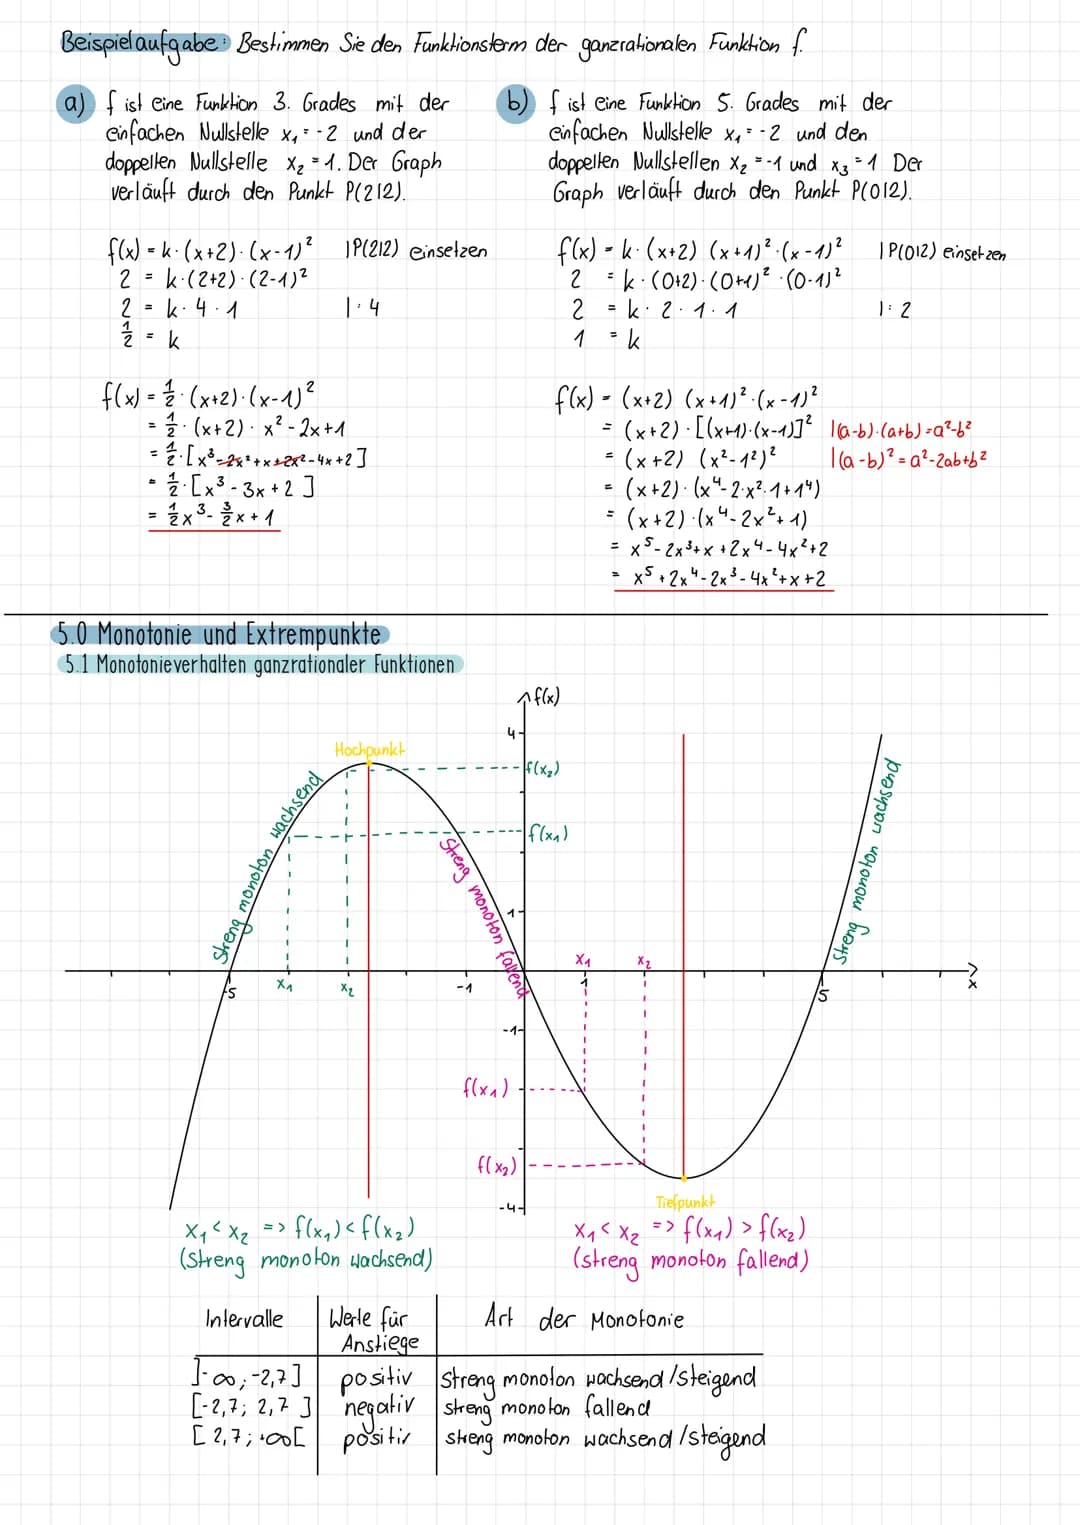 Beispielaufgabe: Bestimmen Sie den Funktionsterm der ganzrationalen Funktion f.
a) f ist eine Funktion 3. Grades mit der
einfachen Nullstelle x₁ = -2 und der
doppelten Nullstelle x₂ = 1. Der Graph
verläuft durch den Punkt P(2|2).
f(x) = k · (x+2) · (x-1)² |P(2|2) einsetzen
2 = k · (2+2) · (2-1)²
2 = k · 4 · 1 |: 4
1/2 = k
f(x) = 1/2 · (x+2) · (x-1)²
= 1/2 · (x+2) · x² - 2x + 1
= 1/2 · [x³ - 2x² + x + 2x² - 4x + 2]
= 1/2 · [x³ - 3x + 2]
= 1/2 x³ - 3/2 x + 1
b) f ist eine Funktion 5. Grades mit der
einfachen Nullstelle x₁ = -2 und den
doppelten Nullstellen x₂ = -1 und x₃ = 1 Der
Graph verläuft durch den Punkt P(0|2).
f(x) = k · (x+2) (x+1)² · (x-1)² |P(0|2) einsetzen
2 = k · (0+2) · (0+1)² · (0-1)²
2 = k · 2 · 1 · 1 |: 2
1 = k
f(x) = (x+2) (x+1)² · (x-1)²
= (x+2) · [(x+1) · (x-1)]² |(a-b)·(a+b)=a²-b²
= (x+2) (x²-1²)² |(a-b)²=a²-2ab+b²
= (x+2) · (x⁴ - 2·x²·1 + 1⁴)
= (x+2) · (x⁴ - 2x² + 1)
= x⁵ - 2x³ + x + 2x⁴ - 4x² + 2
= x⁵ + 2x⁴ - 2x³ - 4x² + x + 2
5.0 Monotonie und Extrempunkte
5.1 Monotonieverhalten ganzrationaler Funktionen
f(x)
4
Hochpunkt
f(x₂)
f(x₁)
Streng monoton wachsend
Streng monoton fallend
Streng monoton wachsend
1
x₁ x₂
-5 x₁ x₂ -1 1 5 x
-1
f(x₁)
f(x₂)
-4
Tiefpunkt
x₁ < x₂ => f(x₁) < f(x₂)
(Streng monoton wachsend)
x₁ < x₂ => f(x₁) > f(x₂)
(streng monoton fallend)
Intervalle Werte für Anstiege Art der Monotonie
]-∞; -2,7] positiv Streng monoton wachsend/steigend
[-2,7; 2,7] negativ streng monoton fallend
[2,7; +∞[ positiv streng monoton wachsend/steigend